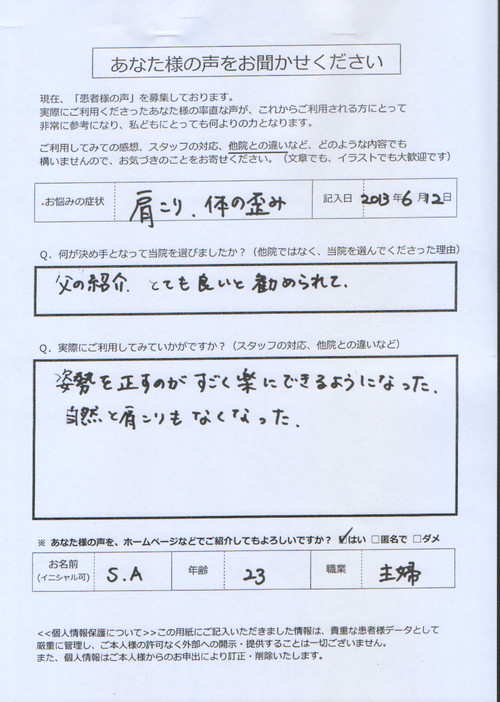 あなた様の声をお聞かせください
現在、「患者様の声」を募集しております。
実際にご利用くださったあなた様の率直な声が、これからご利用される方にとって
非常に参考になり、私どもにとっても何よりの力となります。
ご利用してみての感想、スタッフの対応、他院との違いなど、どのような内容でも
構いませんので、お気づきのことをお寄せください。（文章でも、イラストでも大歓迎です）
・お悩みの症状 肩こり、体の歪み 記入日 2013年6月12日
Q．何が決め手となって当院を選びましたか？（他院ではなく、当院を選んでくださった理由）
父の紹介、とても良いと勧められて、
Q．実際にご利用してみていかがですか？（スタッフの対応、他院との違いなど）
姿勢を正すのがすごく楽にできるようになった、
自然と肩こりもなくなった、
※ あなた様の声を、ホームページなどでご紹介してもよろしいですか？ ☑はい □匿名で □ダメ
お名前 S.A 年齢 23 職業 主婦
(イニシャル可)
<<個人情報保護について>>この用紙にご記入いただきました情報は、貴重な患者様データとして
厳重に管理し、ご本人様の許可なく外部への開示・提供することは一切ございません。
また、個人情報はご本人様からのお申出により訂正・削除いたします。